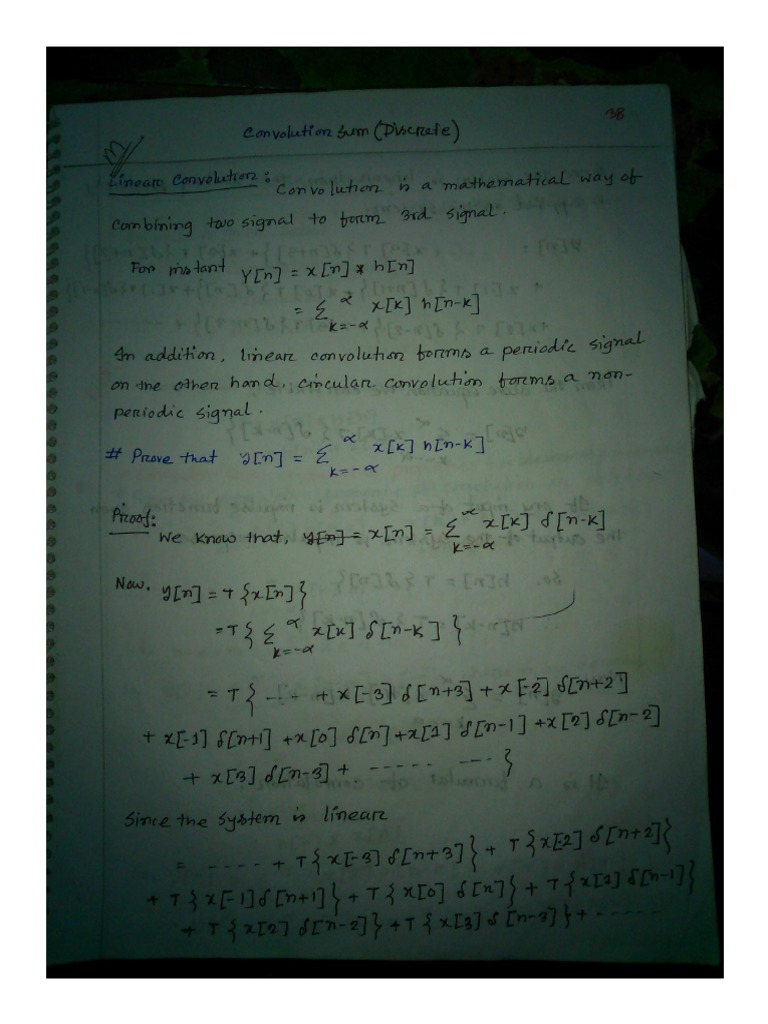 38
Convolution Sum (Discrete)
Linear Convolution: Convolution is a mathematical way of
combining two signal to form 3rd signal.
For instant Y[n] = x[n] * h[n]
= Σ_{k=-α}^{α} x[k] h[n-k]
In addition, linear convolution forms a periodic signal
on the other hand, circular convolution forms a non-
periodic signal.
# Prove that y[n] = Σ_{k=-α}^{α} x[k] h[n-k]
Proof:
We know that, y[n] = x[n] = Σ_{k=-α}^{α} x[k] δ[n-k]
Now, y[n] = T{x[n]}
= T{ Σ_{k=-α}^{α} x[k] δ[n-k] }
= T{ .... + x[-3] δ[n+3] + x[-2] δ[n+2]
+ x[-1] δ[n+1] + x[0] δ[n] + x[1] δ[n-1] + x[2] δ[n-2]
+ x[3] δ[n-3] + ..... ... }
Since the system is linear
= .... + T{x[-3] δ[n+3]} + T{x[-2] δ[n+2]}
+ T{x[-1] δ[n+1]} + T{x[0] δ[n]} + T{x[1] δ[n-1]}
+ T{x[2] δ[n-2]} + T{x[3] δ[n-3]} + ......